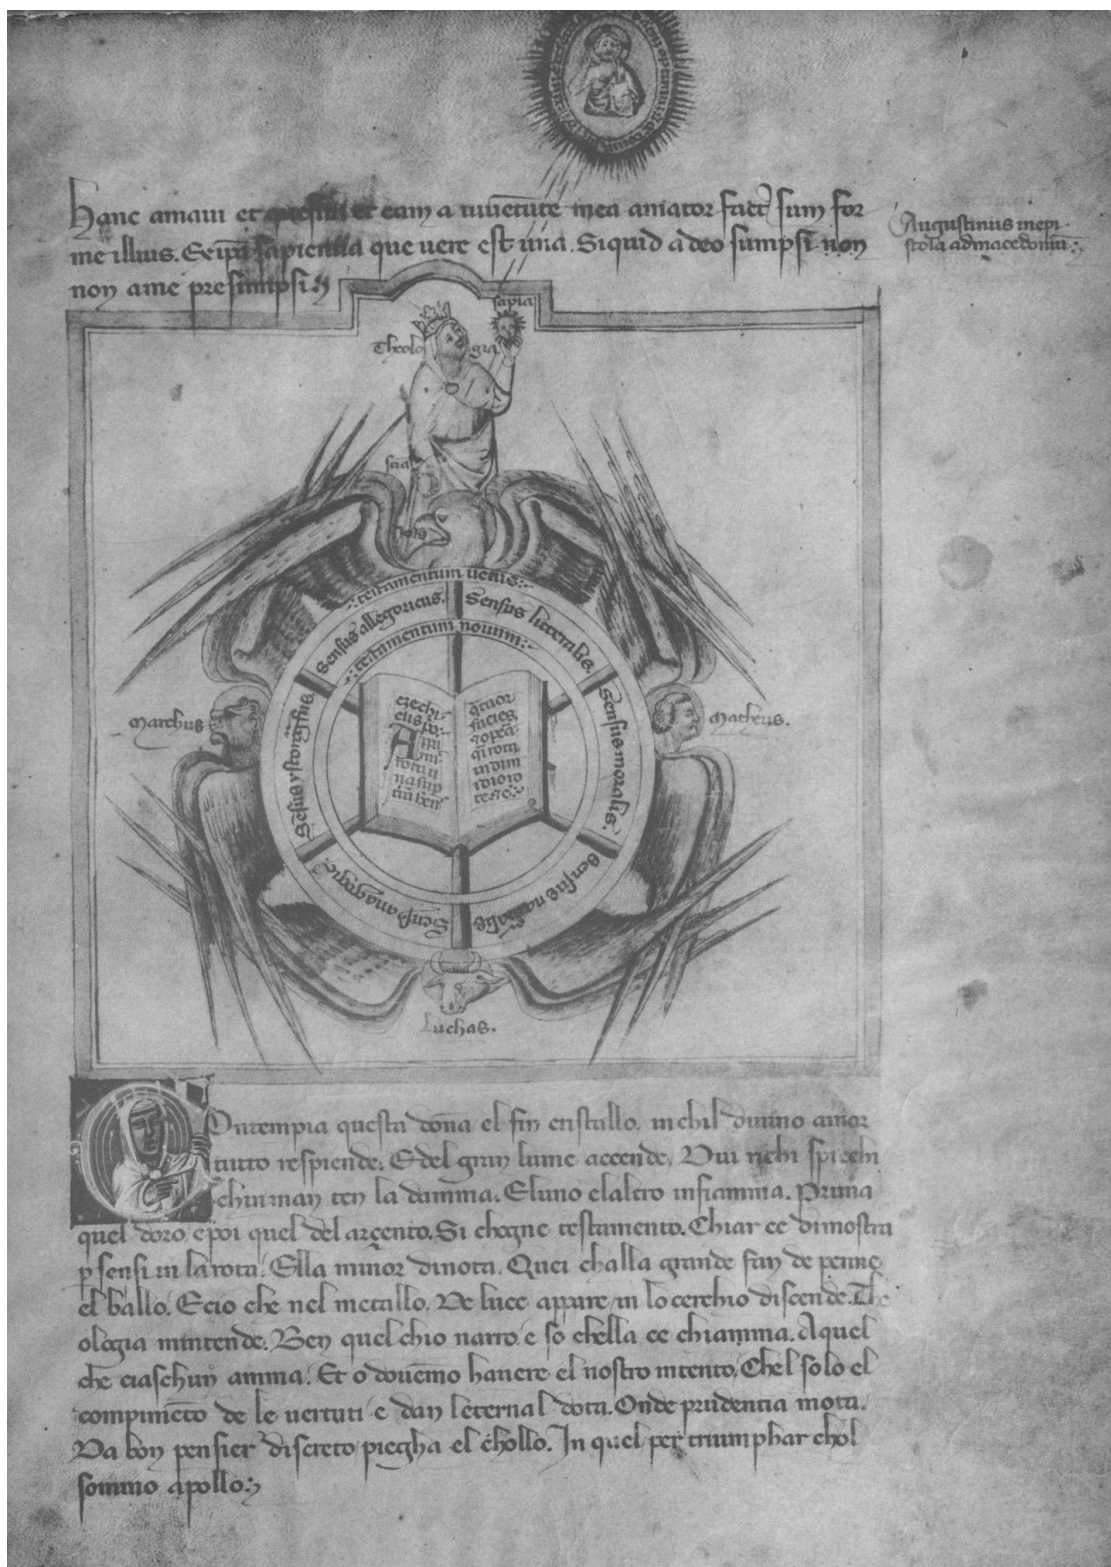 hanc amaui et quesiui et eam a iuuētute mea amator fact' sum for
me illius. Ex ip̄a sapientia que uere est una. Siquid a deo sumpsi non
non a me presumpsi:
Augustinus in epi
stola ad macedoniū:
sapīa
Theolo gia
scīa
testamentum uetus:
Sensus allegoricus.
Sensus litteralis.
testamentum nouum:
Sensus moralis.
Marchus
Matheus.
ezechi
A
q̄tuor
facies
rota
in dim
idio ro
te
Luchas.
Ontempla questa dōna el fin cristallo. in chil diuino amor
tutto resplende. E del gran lume accende. Dui richi specchi
chin man ten la damma. E luno e laltro infiamma. Prima
quel doro e poi quel del argento. Si chogne testamento. Chiar ce dimostra
p sensi in la rota. Ella minor dinota. Quei challa grande fan de penne
el ballo. E cio che nel metallo. De luce appare in lo cerchio discende. The
ologia mintende. Ben quel chio narro e so chella ce chiamma. A quel
che ciaschun amma. Et o douemo hauere el nostro intento. Chel solo el
compimēto de le uertuti e dan leternal dota. Onde prudentia mota.
Da bon pensier discreto piegha el chollo. In quel per triumphar chol
sommo apollo: